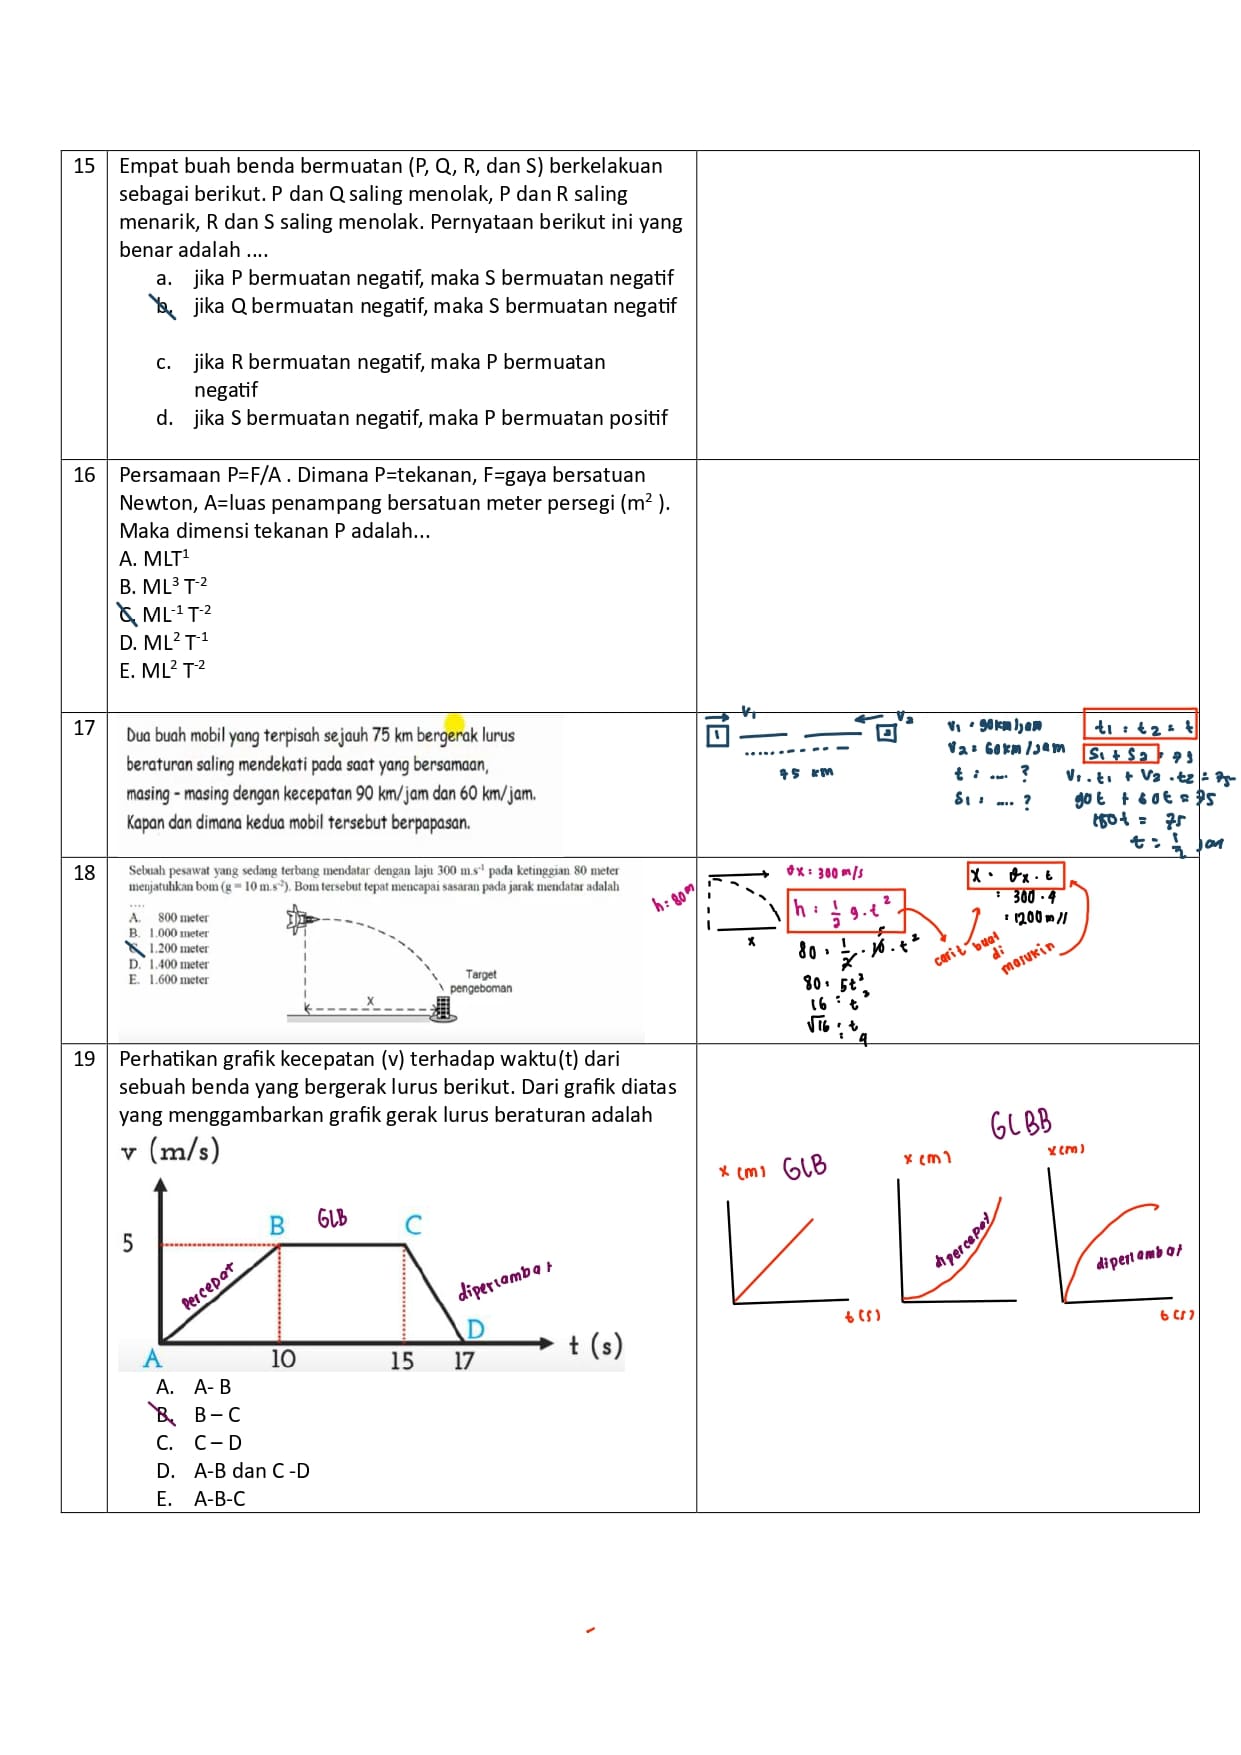 15
Empat buah benda bermuatan (P, Q, R, dan S) berkelakuan
sebagai berikut. P dan Q saling menolak, P dan R saling
menarik, R dan S saling menolak. Pernyataan berikut ini yang
benar adalah ....
a. jika P bermuatan negatif, maka S bermuatan negatif
b. jika Q bermuatan negatif, maka S bermuatan negatif
c. jika R bermuatan negatif, maka P bermuatan
negatif
d. jika S bermuatan negatif, maka P bermuatan positif
16
Persamaan P=F/A . Dimana P=tekanan, F=gaya bersatuan
Newton, A=luas penampang bersatuan meter persegi (m² ).
Maka dimensi tekanan P adalah...
A. MLT¹
B. ML³ T⁻²
C. ML⁻¹ T⁻²
D. ML² T⁻¹
E. ML² T⁻²
17
Dua buah mobil yang terpisah sejauh 75 km bergerak lurus
beraturan saling mendekati pada saat yang bersamaan,
masing - masing dengan kecepatan 90 km/jam dan 60 km/jam.
Kapan dan dimana kedua mobil tersebut berpapasan.
V₁
1
V₂
2
75 km
V₁ = 90 km/jam
V₂ = 60 km/jam
t = .... ?
S₁ = .... ?
t₁ = t₂ = t
S₁ + S₂ = 75
V₁ . t₁ + V₂ . t₂ = 75
90t + 60t = 75
150t = 75
t = 1/2 jam
18
Sebuah pesawat yang sedang terbang mendatar dengan laju 300 m.s⁻¹ pada ketinggian 80 meter
menjatuhkan bom (g = 10 m.s⁻²). Bom tersebut tepat mencapai sasaran pada jarak mendatar adalah
....
A. 800 meter
B. 1.000 meter
C. 1.200 meter
D. 1.400 meter
E. 1.600 meter
Target
pengeboman
X
h = 80m
x
Vx = 300 m/s
h = 1/2 g . t²
80 = 1/2 . 10 . t²
5
80 = 5t²
16 = t²
√16 = t
4
cari t buat
di
masukin
X = Vx . t
= 300 . 4
= 1200 m //
19
Perhatikan grafik kecepatan (v) terhadap waktu(t) dari
sebuah benda yang bergerak lurus berikut. Dari grafik diatas
yang menggambarkan grafik gerak lurus beraturan adalah
v (m/s)
5
B
GLB
C
Percepat
diperlambat
D
A
10
15
17
t (s)
A. A- B
B. B – C
C. C – D
D. A-B dan C -D
E. A-B-C
GLBB
x (m)
GLB
t (s)
x (m)
dipercepat
x (m)
diperlambat
t (s)